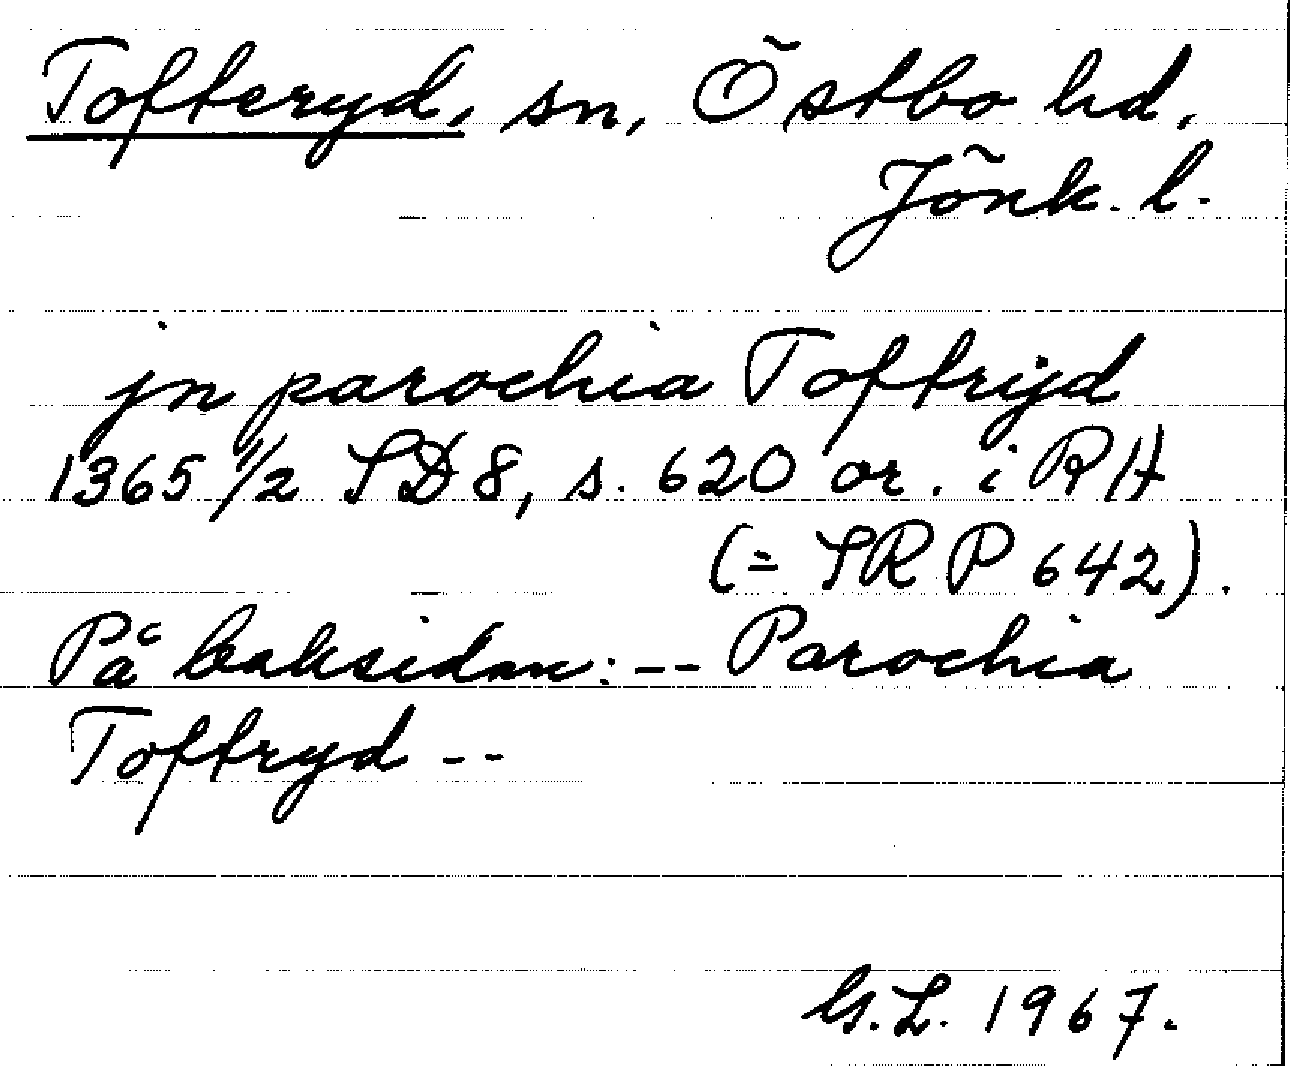 Tofteryd, sn, Östbo hd,
Jönk. l.
jn parochia Toftryd
1365 1/2 SD 8, s. 620 or. i RA
(= SRP 642).
På baksidan: -- Parochia
Toftryd --
G.L. 1967.